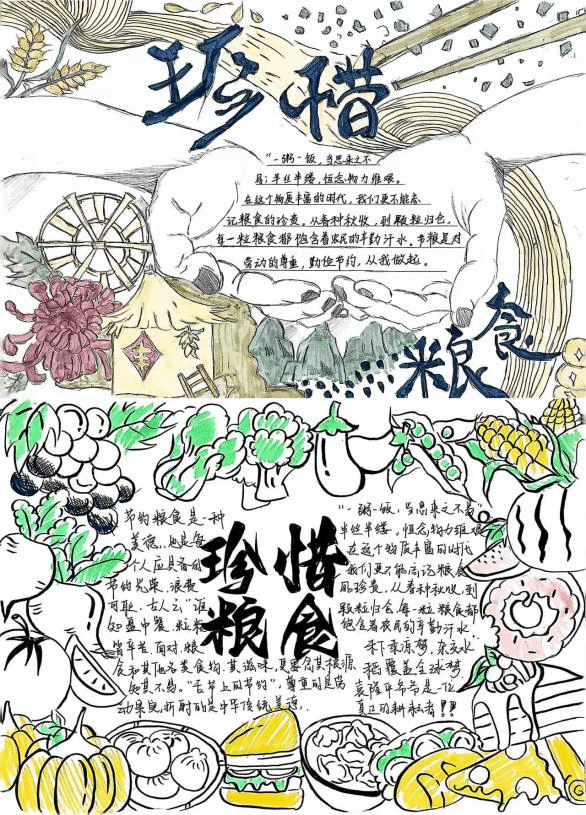 珍惜
"一粥一饭,当思来之不
易;半丝半缕,恒念物力维艰。
在这个物质丰富的时代,我们更不能忘
记粮食的珍贵。从春种秋收,到颗粒归仓,
每一粒粮食都饱含着农民的辛勤汗水,节粮是对
劳动的尊重,勤俭节约,从我做起。
丰
粮食
节约粮食是一种
美德,也是每
个人应具备的
节约光荣,浪费
可耻,古人云"谁
知盘中餐,粒粒
皆辛苦,面对粮
食和其他各类食物,其滋味,更要念其根源
知其不易。"舌尖上的节约",尊重的是劳
动果实,折射的是中华传统美德
珍惜
粮食
"一粥一饭,当思来之不易
半丝半缕,恒念物力维艰
在这个物质丰富的时代
我们更不能忘记粮食
的珍贵,从春种秋收,到
颗粒归仓,每一粒粮食都
饱含着农民的辛勤汗水
禾下乘凉梦,杂交水
稻覆盖全球梦
袁隆平爷爷是一位
真正的耕耘者!!!